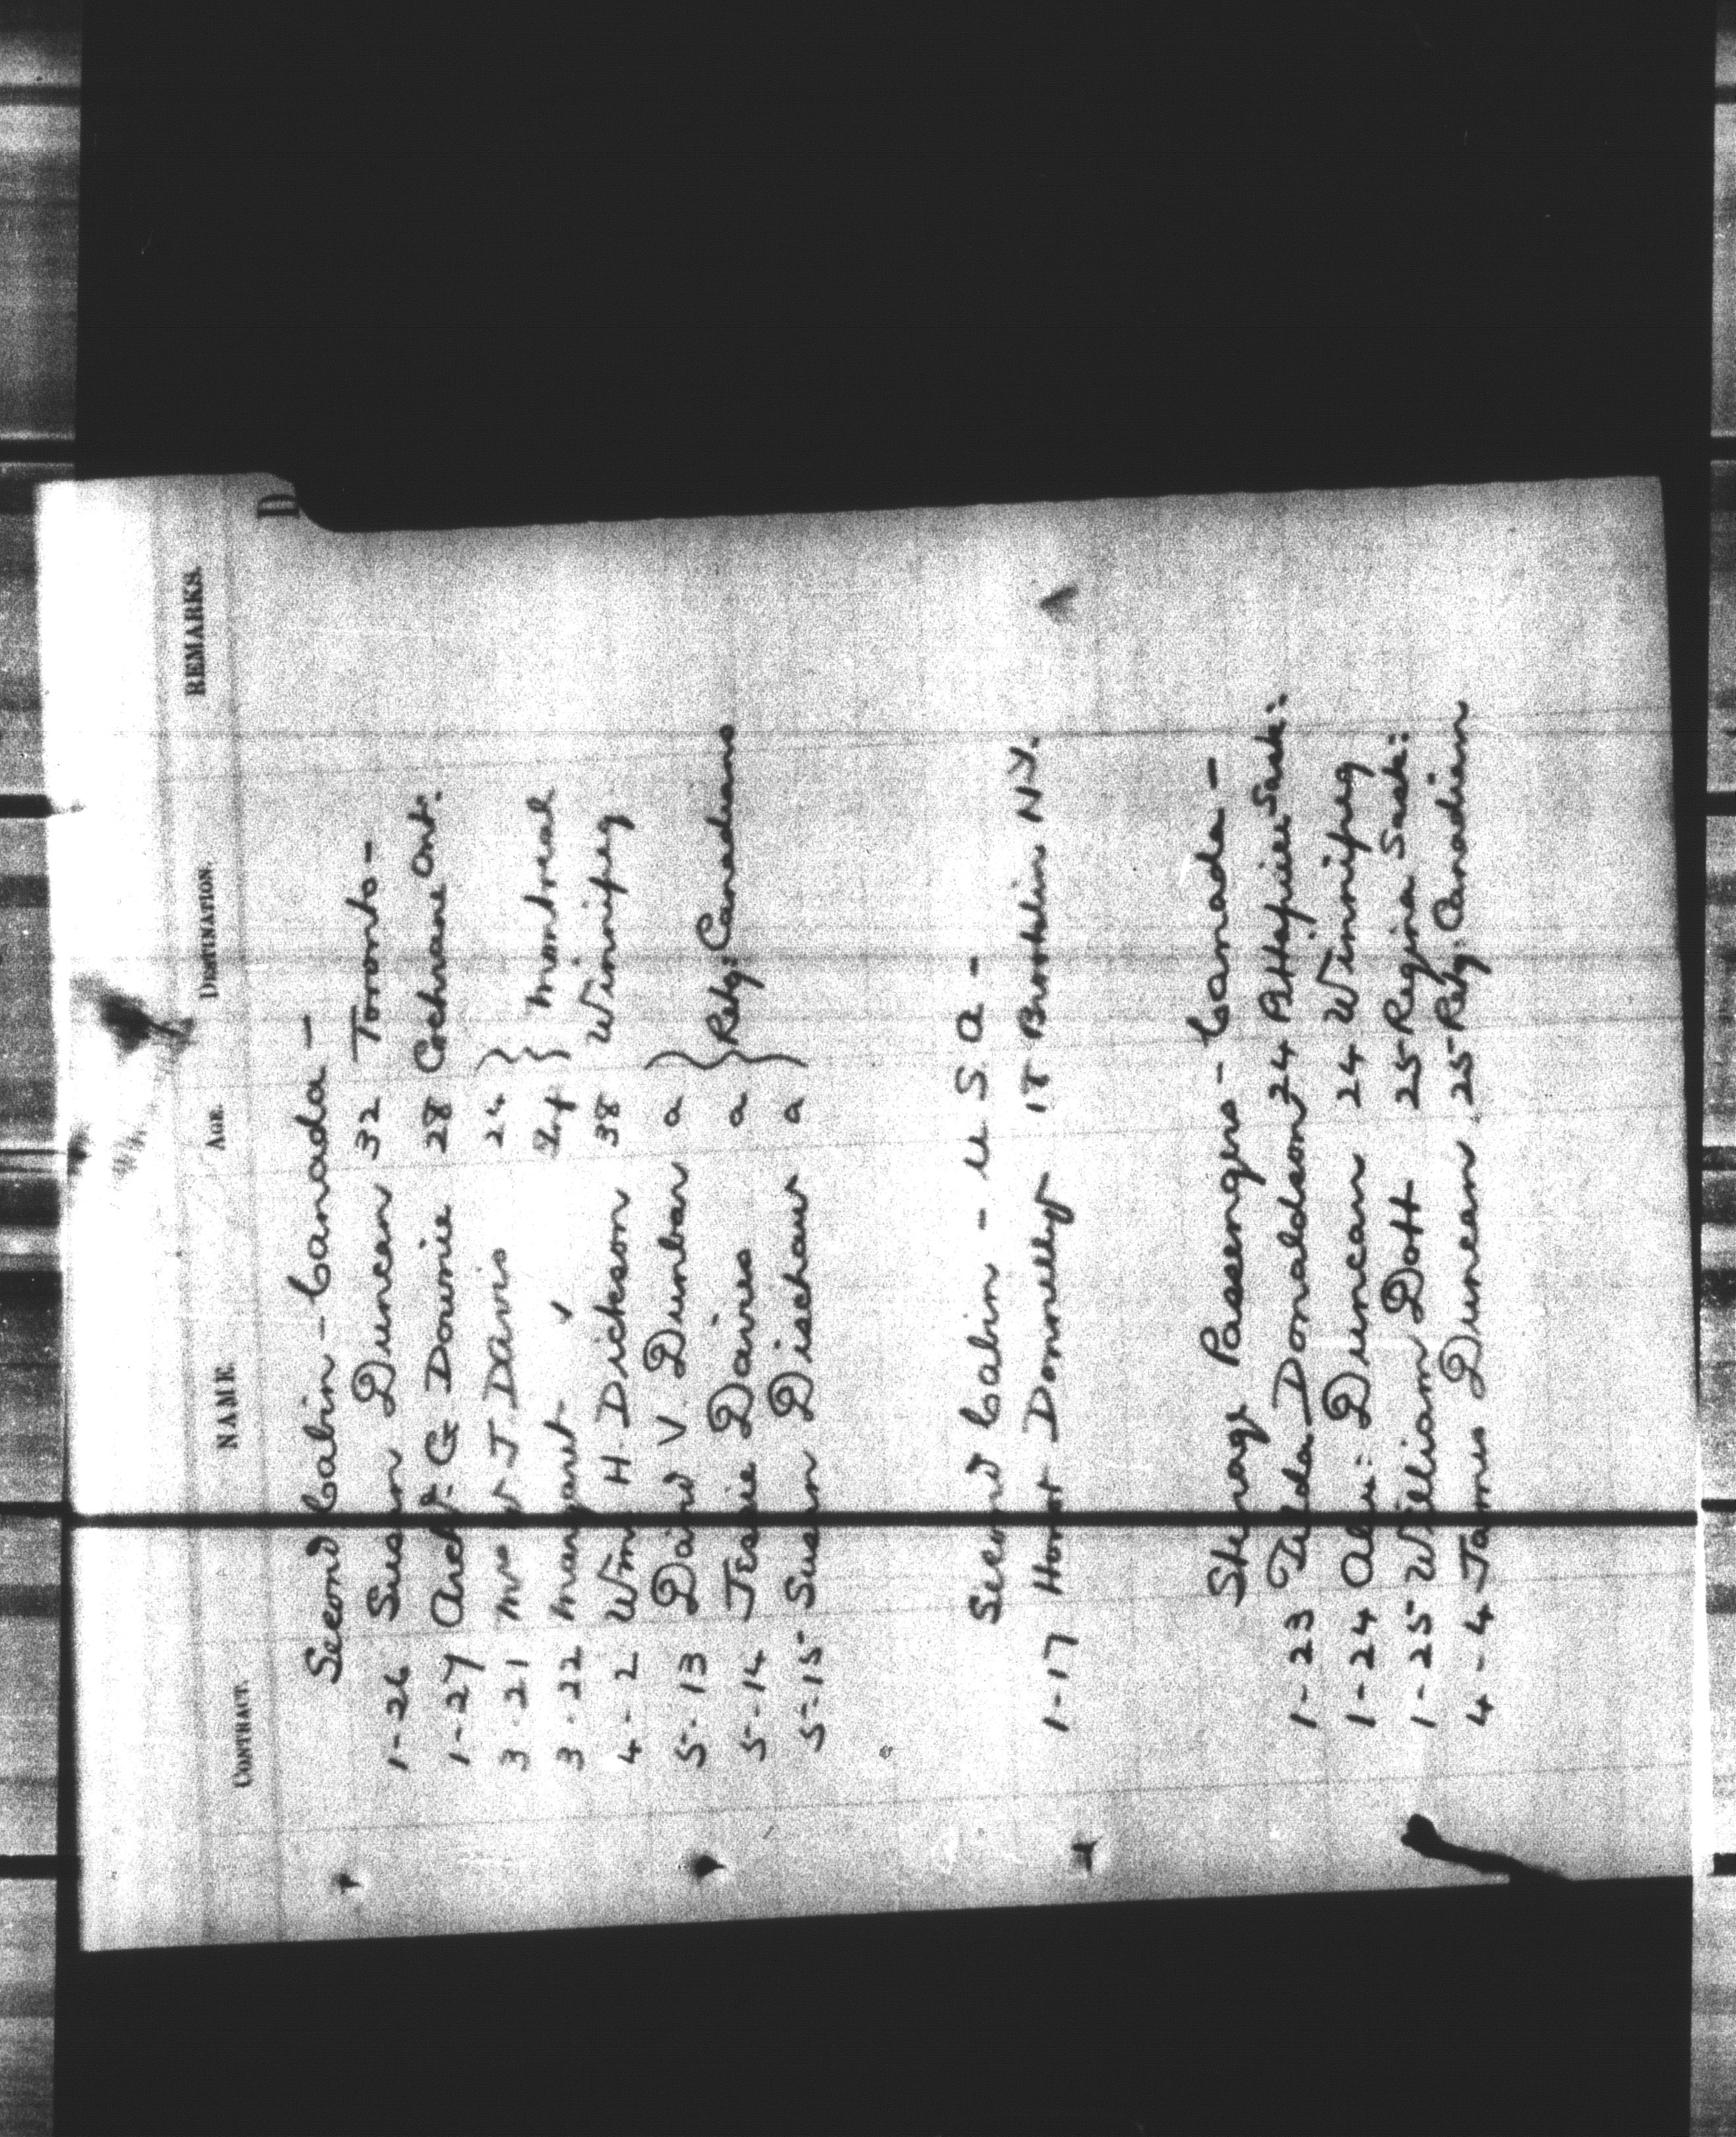 D
CONTRACT. NAME. AGE. DESTINATION. REMARKS.
Second Cabin - Canada -
1-26 Susan Duncan 32 Toronto -
1-27 Archd: G. Downie 28 Cochrane Ont:
3-21 Mrs W J. Davis 24
3-22 Margaret " Inf } Montreal
4-2 Wm H. Dickson 38 Winnipeg
5-13 David V. Dunbar a
5-14 Jessie Davies a } Retg: Canadians
5-15 Susan Dischaw a
Second Cabin - U.S.A -
1-17 Donnelly 18 Brooklin N.Y.
Steerage Passengers - Canada -
1-23 Donaldson 24 Sask:
1-24 Alex: Duncan 24 Winnipeg
1-25 William Dott 25 Regina Sask:
4-4 James Duncan 25 Retg. Canadian